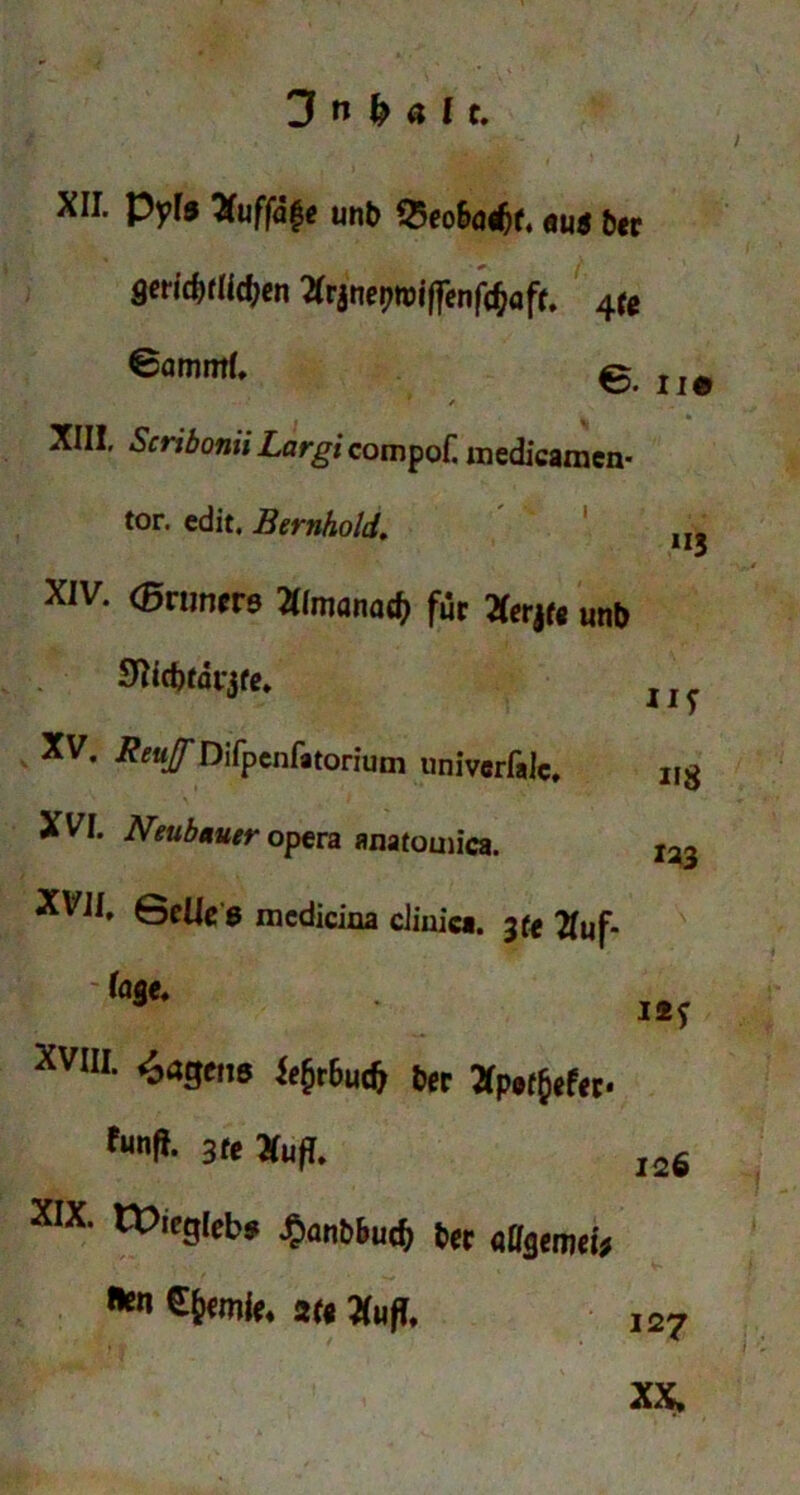 Inhalt.
XII. Pyls Aufsäße und Beobacht. aus der
gerichtlichen Arzneywissenschaft. 4te
Samml. S. 110
XIII. Scribonii Largi compoſ. medicamen-
tor. edit. Bernhold. 113
XIV. Gruners Almanach für Aerzte und
Nichtärzte. 115
XV. Reuſſ Diſpenſatorium univerſale. 118
XVI. Neubauer opera anatomica. 123
XVII. Selle's medicina clinica. 3te Auf-
lage. 125
XVIII. Hagens Lehrbuch der Apotheker-
kunst. 3te Aufl. 126
XIX. Wieglebs Handbuch der allgemei-
nen Chemie. 2te Aufl. 127
XX.